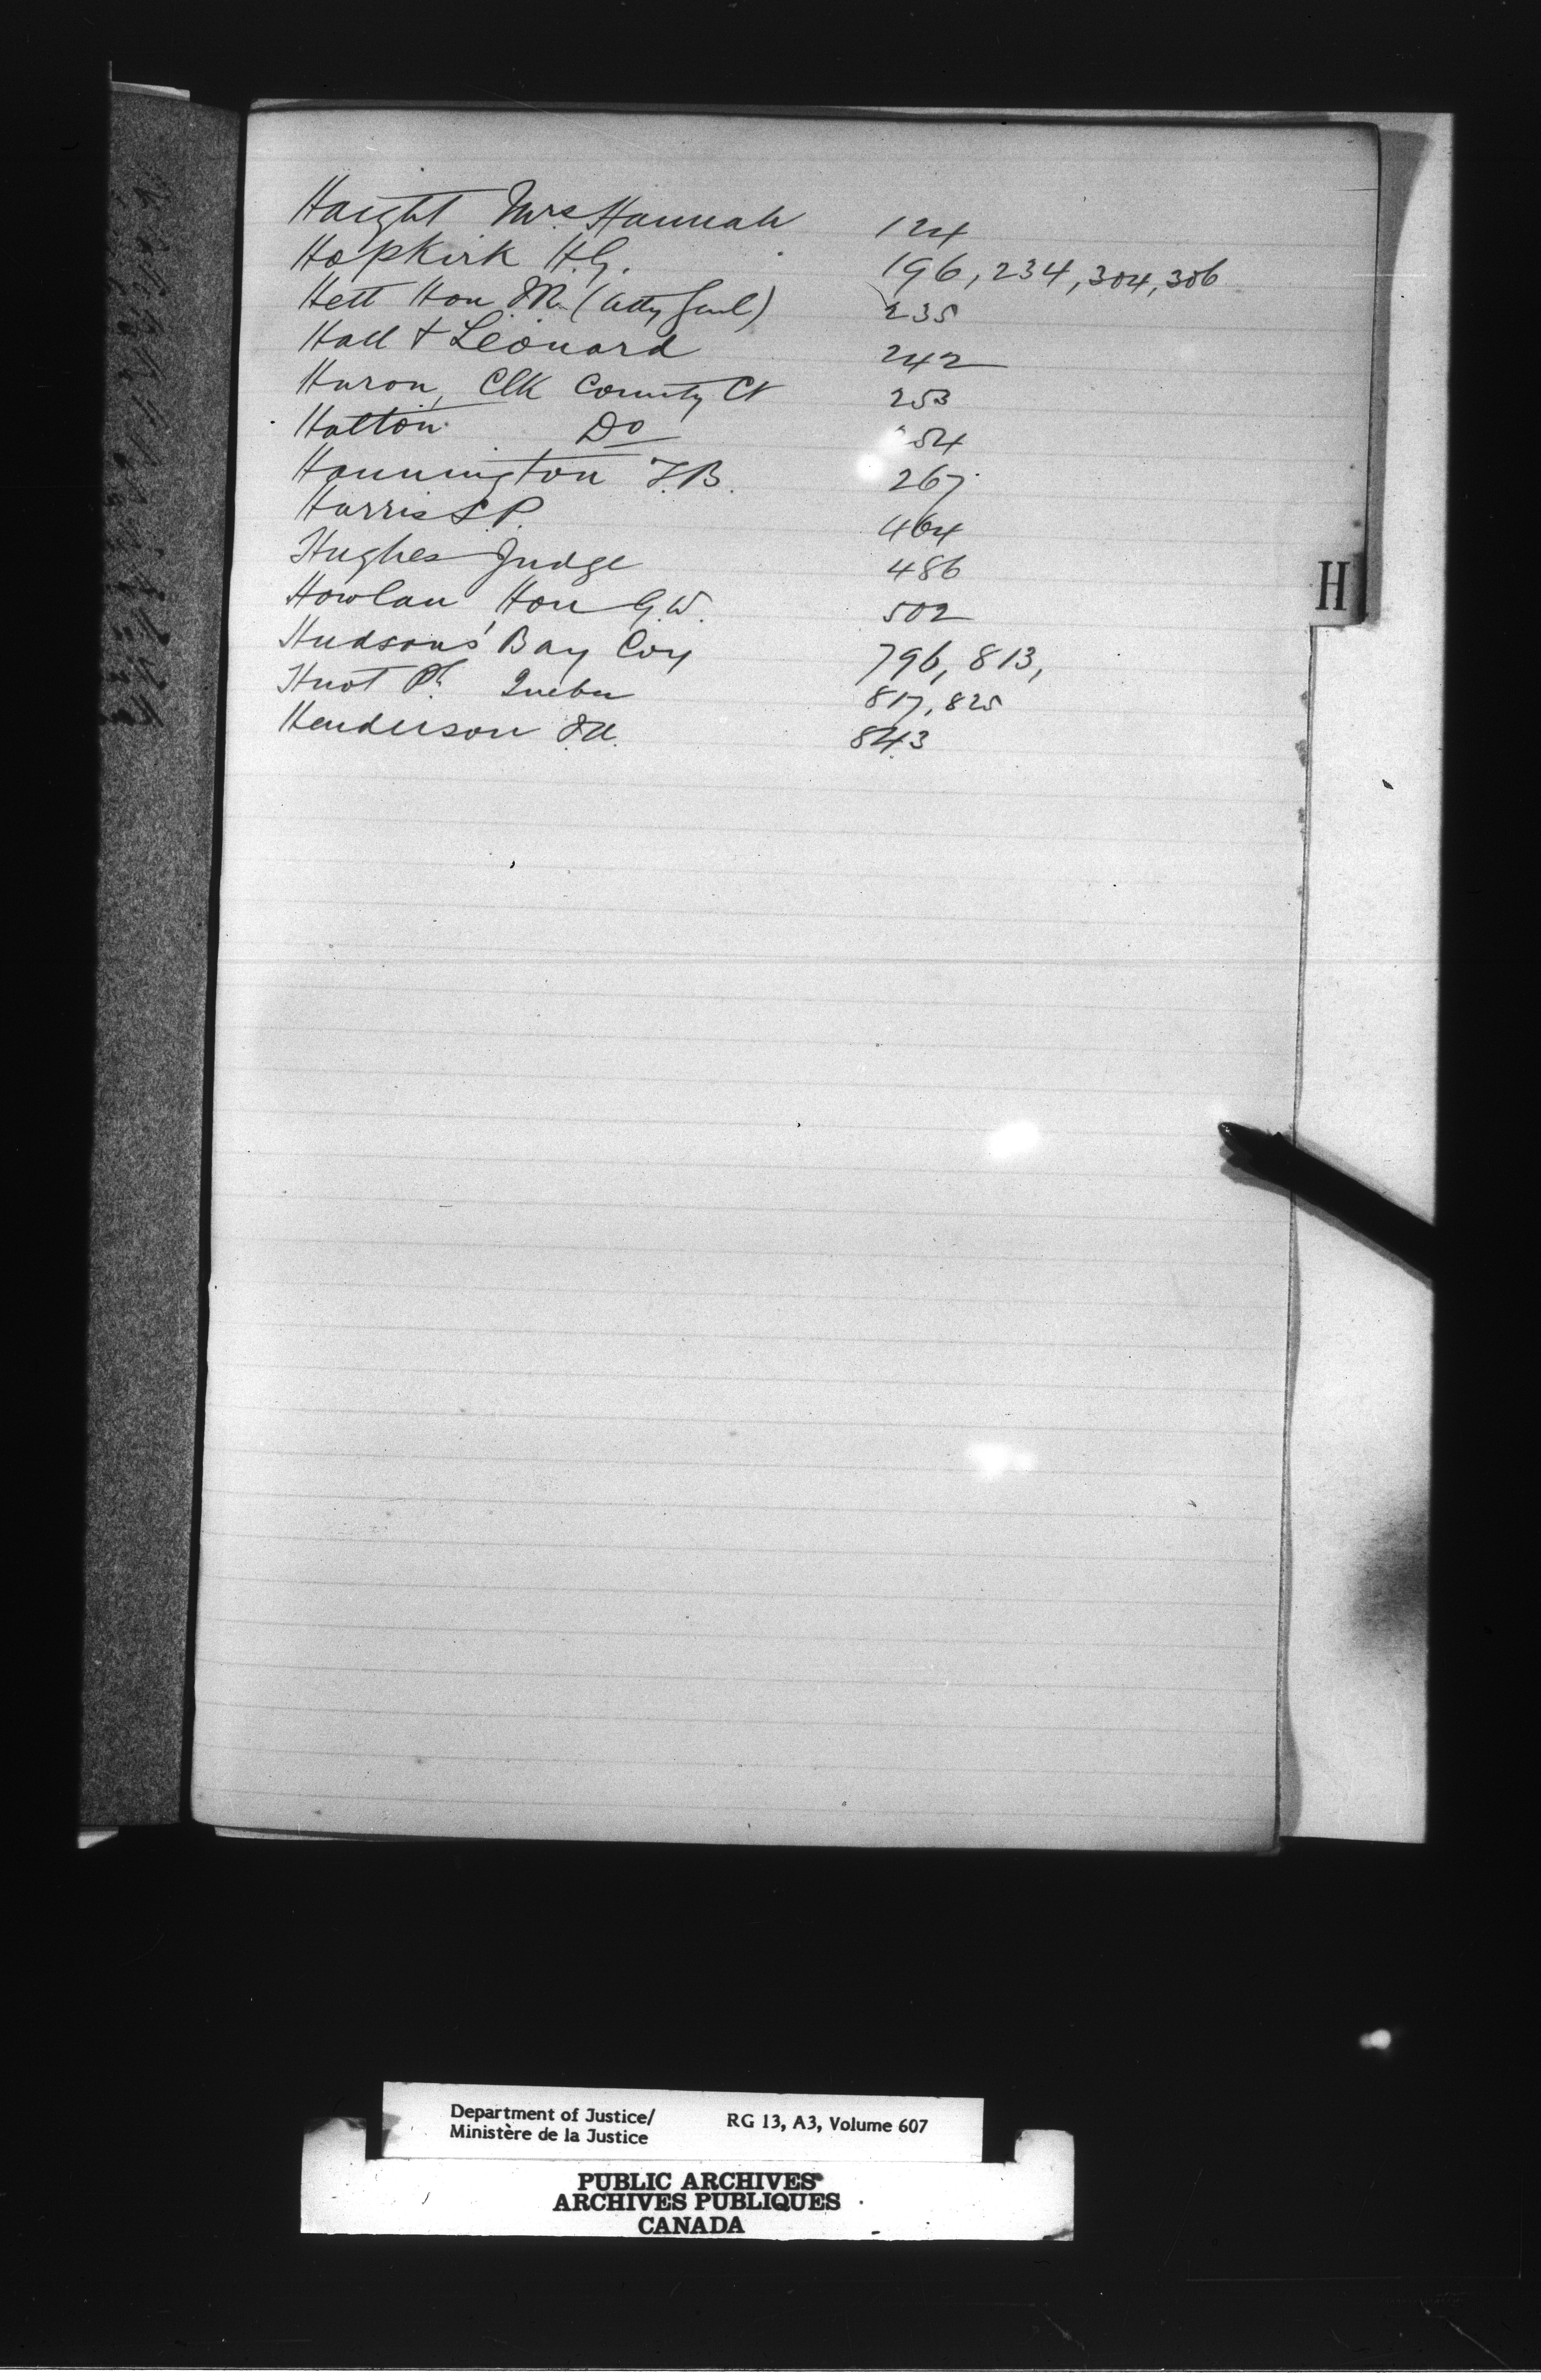 Haight Mrs. Hannah 124
Hopkirk H.G. 196, 234, 304, 306
Hett Hon. R. (Atty Genl) 235
Hall & Leonard 242
Huron, Clk County Ct 253
Halton Do 254
Hannington T.B. 267
Harris L.P. 464
Hughes Judge 486
H
Howlan, Hon G.W. 502
Hudsons' Bay Coy 796, 813,
Huot Ph. Quebec 817, 825
Henderson J.A. 843
Department of Justice/
Ministère de la Justice
RG 13, A3, Volume 607
PUBLIC ARCHIVES
ARCHIVES PUBLIQUES
CANADA